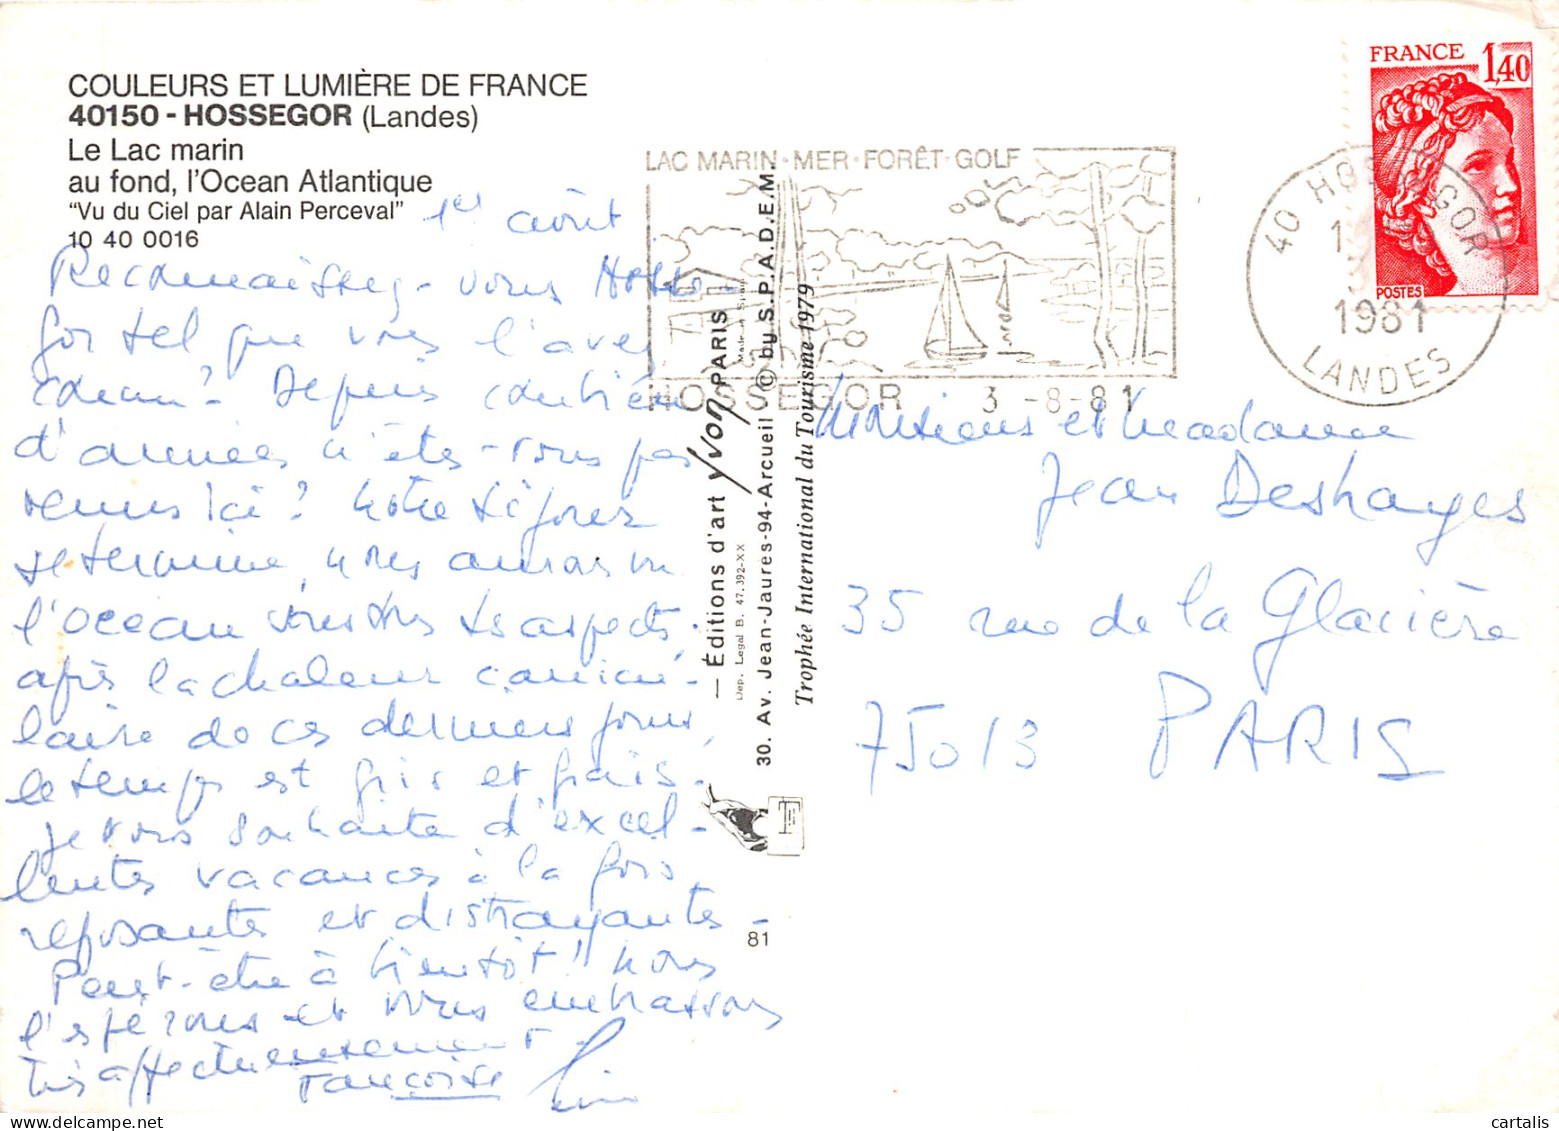 COULEURS ET LUMIÈRE DE FRANCE
40150 - HOSSEGOR (Landes)
Le Lac marin
au fond, l'Ocean Atlantique
"Vu du Ciel par Alain Perceval"
10 40 0016
1er août
Reconnaissez-vous Hosse-
gor tel que vous l'avez
connu? Depuis combien
d'années n'êtes-vous pas
venus ici? Notre séjour
se termine, nous aurons vu
l'océan sous tous ses aspects.
après la chaleur canicu-
laire de ces derniers jours,
le temps est gris et frais.
Je vous souhaite d'excel-
lentes vacances à la fois
reposantes et distrayantes -
Peut-être à bientôt! Nous
l'espérons et vous embrassons
très affectueusement.
Françoise
LAC MARIN · MER · FORÊT · GOLF
HOSSEGOR 3 -8- 81
40 HOSSEGOR
1981
LANDES
FRANCE 1,40
POSTES
— Éditions d'art yvon, PARIS
Made in Spain
Dep. Legal B. 47.392-XX
30. Av. Jean-Jaures-94-Arcueil © by S.P.A.D.E.M.
Trophée International du Tourisme 1979
81
Monsieur et Madame
Jean Deshayes
35 rue de la Glacière
75013 PARIS
cartalis